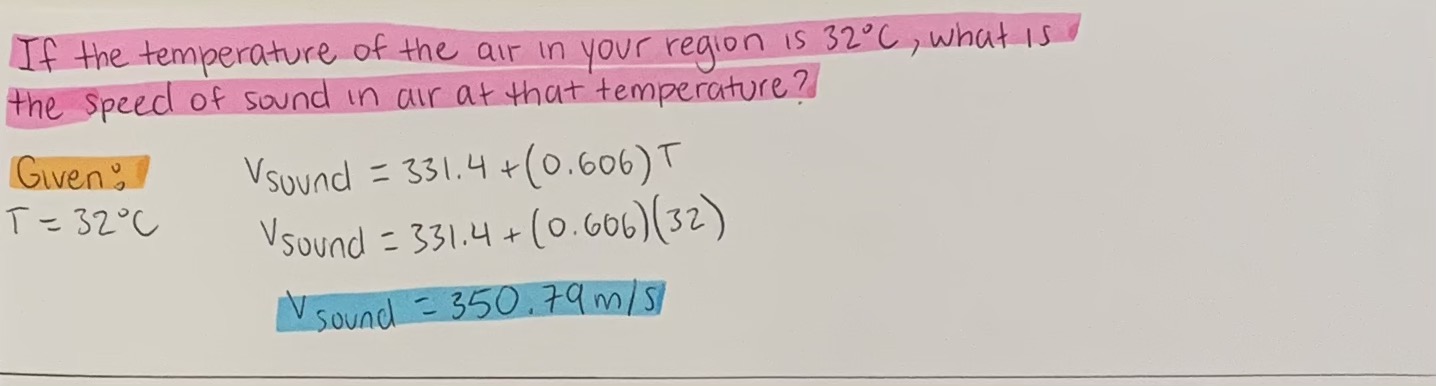 If the temperature of the air in your region is 32°C, what is
the speed of sound in air at that temperature?
Given:
T = 32°C
Vsound = 331.4 + (0.606) T
Vsound = 331.4 + (0.606)(32)
Vsound = 350.79 m/s